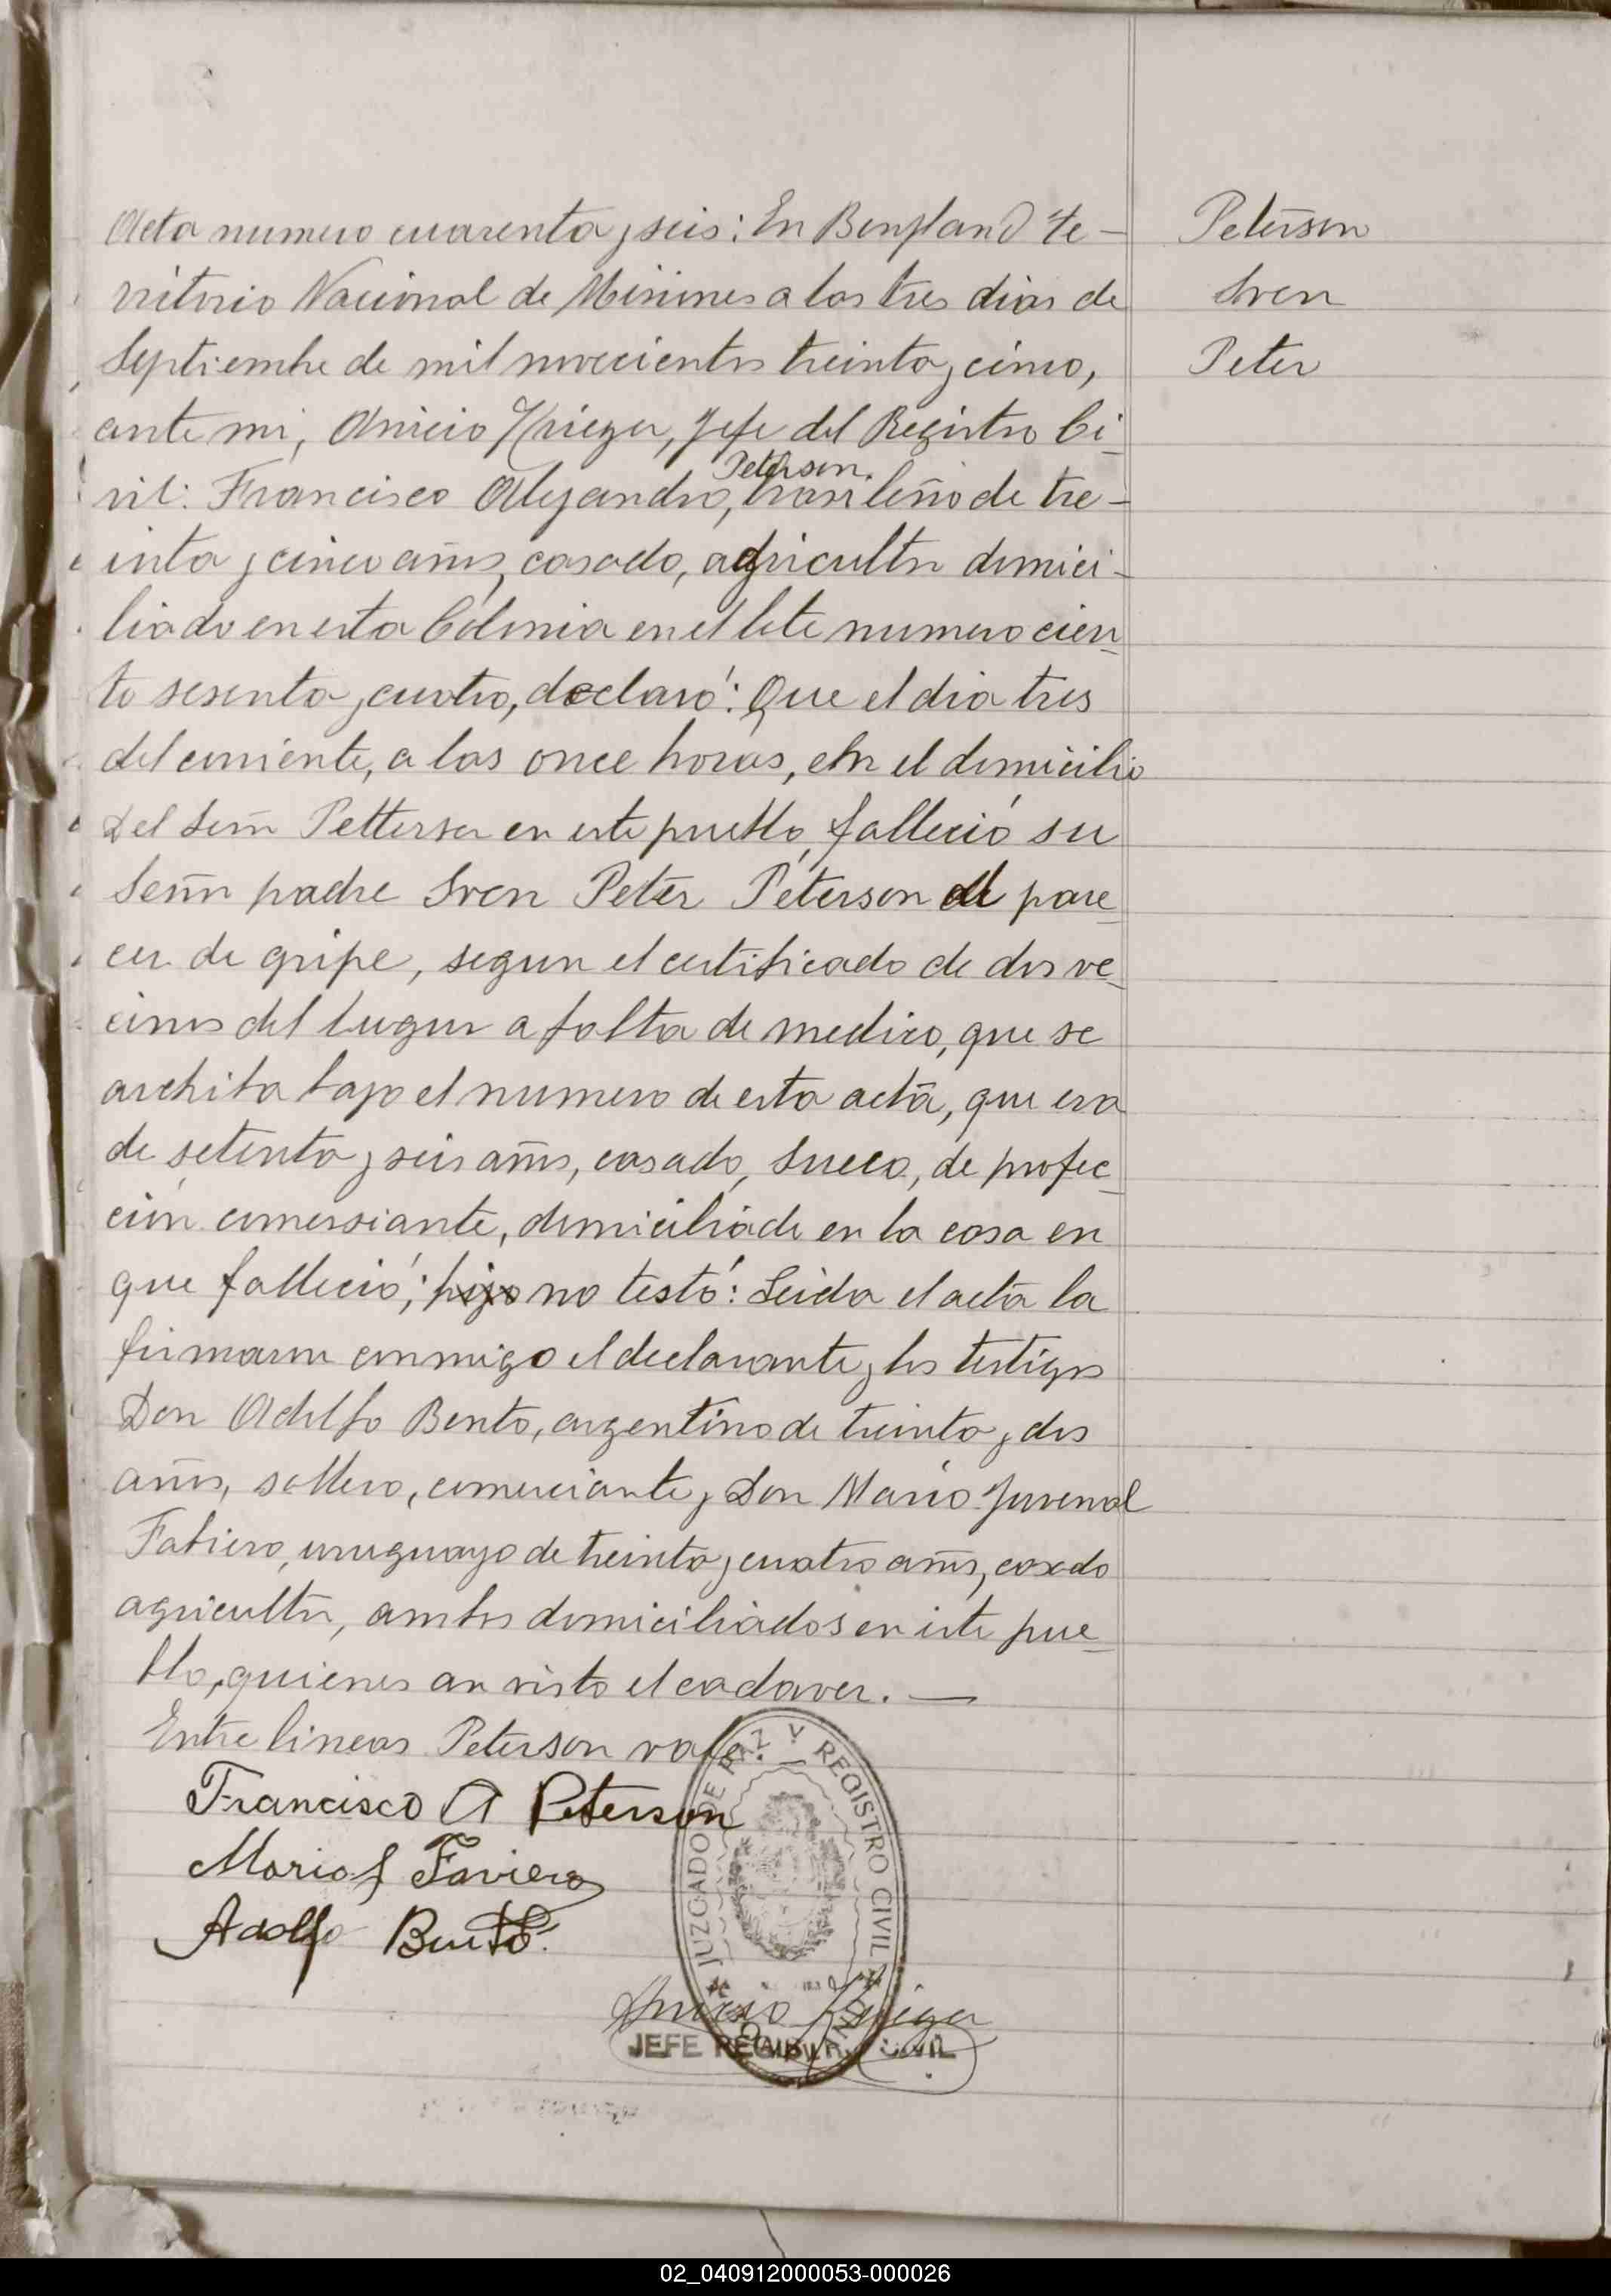 Acta numero cuarenta y seis: En Bonpland te-
rritorio Nacional de Misiones a los tres dias de
Septiembre de mil novecientos treinta y cinco,
ante mi, Anicio Krieger, Jefe del Registro Ci-
vil: Francisco Alejandro, Peterson, brasileño de tre-
inta y cinco años, casado, agricultor domici-
liado en esta Colonia en el lote numero cien-
to sesenta y cuatro, declaró: Que el dia tres
del corriente, a las once horas, en el domicilio
del señor Petterson en este pueblo, falleció su
Señor padre Sven Peter Peterson al pare-
cer de gripe, segun el certificado de dos ve-
cinos del lugar a falta de medico, que se
archiba bajo el numero de esta acta, que era
de setenta y seis años, casado, Sueco, de profec-
ción comersiante, domiciliado en la casa en
que falleció; hijo no testó: Leida el acta la
firmaron conmigo el declarante y los testigos
Don Adolfo Bento, argentino de treinta y dos
años, soltero, comerciante y Don Mario Juvenal
Fabiero, uruguayo de treinta y cuatro años, casado
agricultor, ambos domiciliados en este pue-
blo, quienes an visto el cadaver. —
Entre lineas Peterson vale. —
Francisco A Peterson
Mario J Faviero
Adolfo Bento.
JUZGADO DE PAZ Y REGISTRO CIVIL
Anicio Krieger
JEFE REGISTRO CIVIL
Peterson
Sven
Peter
02_040912000053-000026